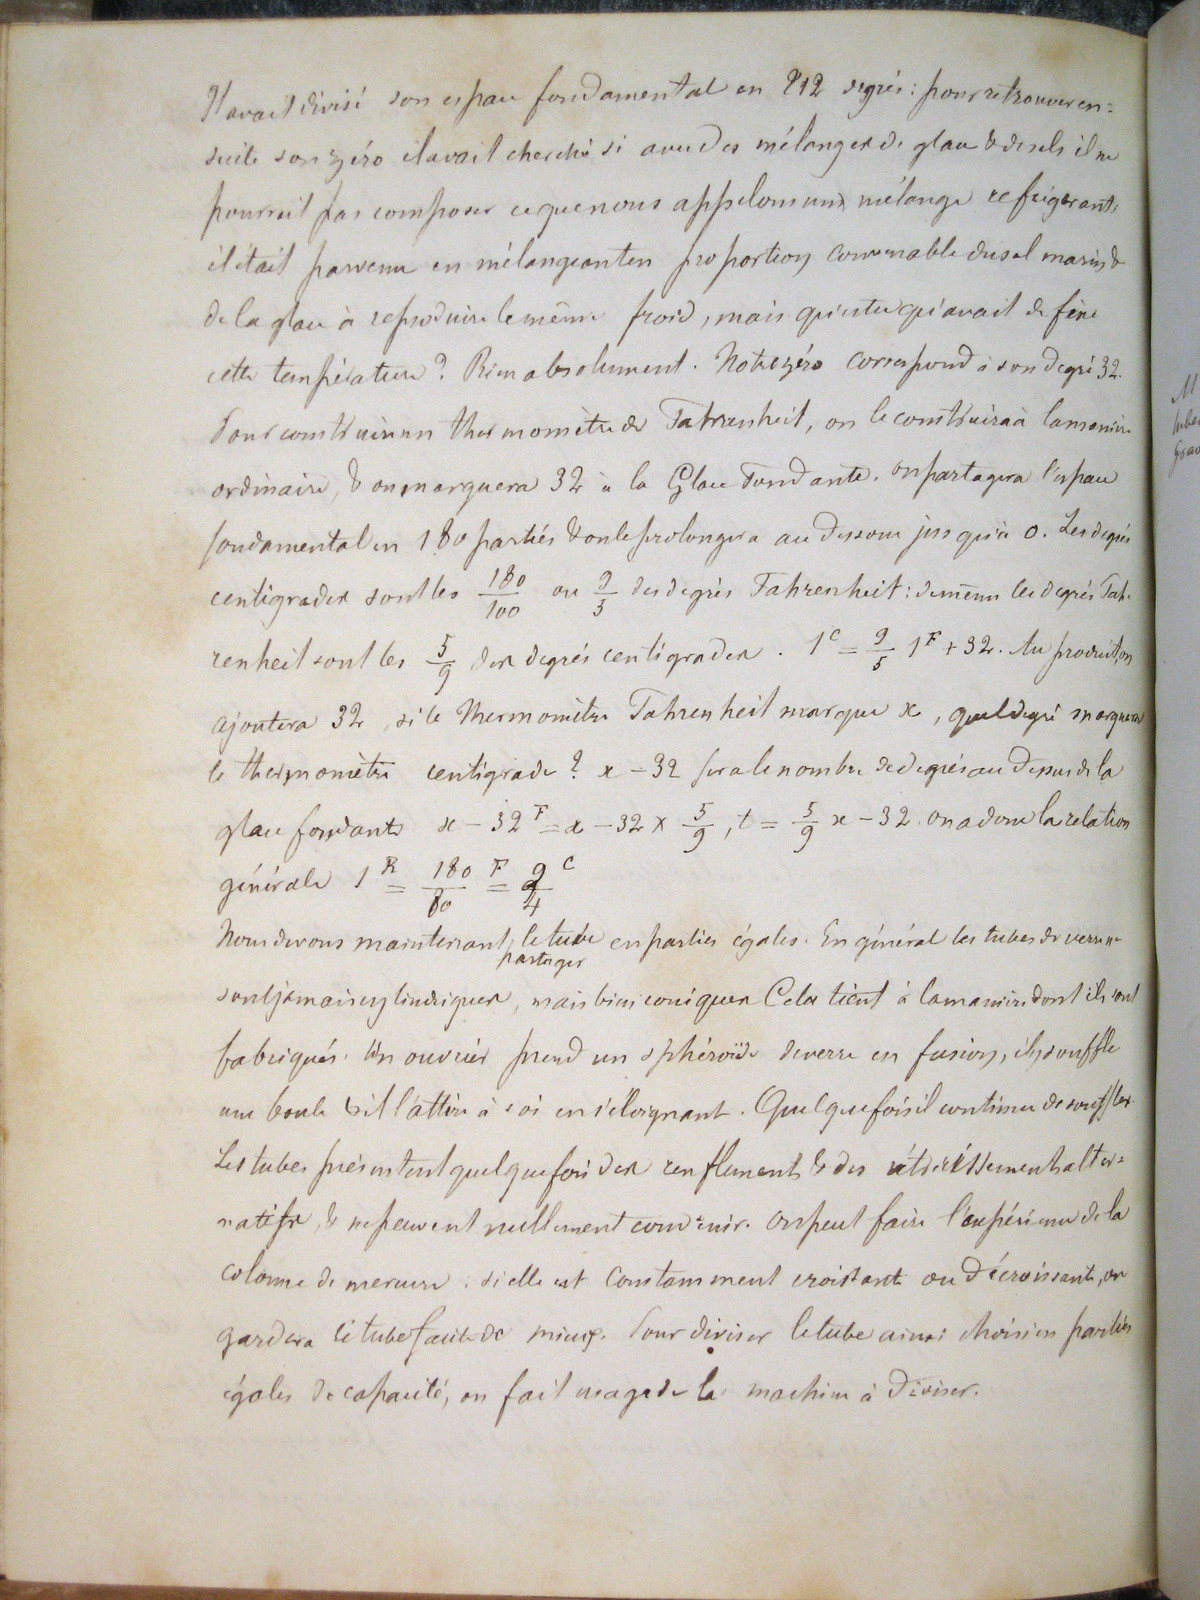 Il avait divisé son espace fondamental en 212 degrés : pour retrouver en=
suite son zéro il avait cherché si avec des mélanges de glace & de sels il ne
pourrait pas composer ce que nous appelons un mélange refrigerant,
il était parvenu en mélangeant en proportion convenable du sel marin &
de la glace à reproduire le même froid, mais qu'est ce qu'avait de fixe
cette température ? Rien absolument. Notre zéro correspond à son degré 32.
Pour construire un thermomètre de Fahrenheit, on le construira à la manière
ordinaire, & on marquera 32 à la Glace Fondante. on partagera l'espace
fondamental en 180 parties & on le prolongera au dessous jusqu'à 0. Les degrés
centigrades sont les 180/100 ou 9/5 des degrés Fahrenheit : de même les degrés Fah-
renheit sont les 5/9 des degrés centigrades. 1^C = 9/5 1^F + 32. Au produit, on
ajoutera 32, si le Thermomètre Fahrenheit marque x, quel degré marquera
le thermomètre centigrade ? x - 32 sera le nombre de degrés au dessus de la
glace fondante x - 32^F = x - 32 × 5/9, t = 5/9 x - 32. on a donc la relation
générale 1^R = 180/80^F = 9/4^C
Nous devons maintenant partager le tube en parties égales. En général les tubes de verre ne
sont jamais cylindriques, mais bien coniques Cela tient à la manière dont ils sont
fabriqués. Un ouvrier prend un sphéroïde de verre en fusion, il y souffle
une boule & il l'attire à soi en s'éloignant. Quelquefois il continue de souffler.
Les tubes présentent quelquefois des renflements & des rétrécissements alter=
natifs, & ne peuvent nullement convenir. On peut faire l'expérience de la
colonne de mercure. si elle est constamment croissante ou décroissante, on
gardera le tube faute de mieux. Pour diviser le tube ainsi choisi en parties
égales de capacité, on fait usage de la machine à diviser.